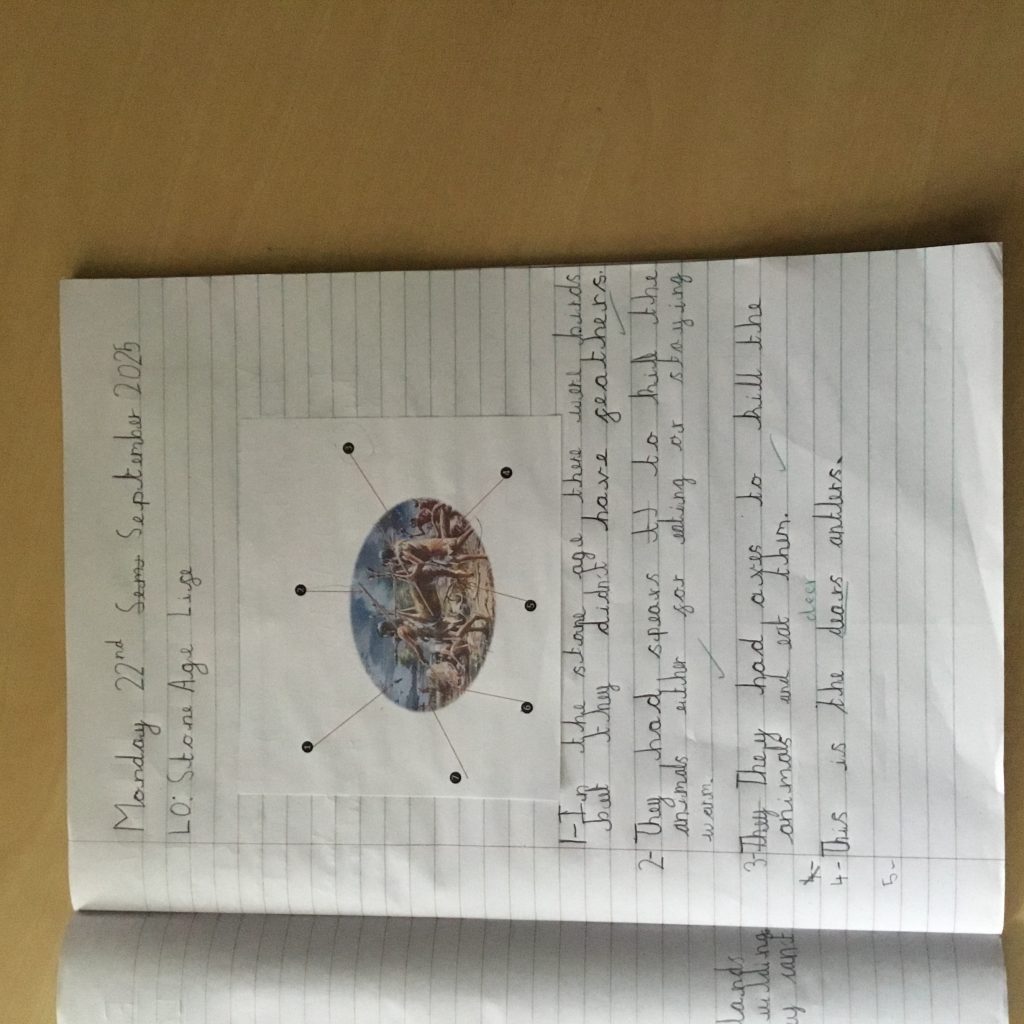 Monday 22nd Sem September 2025
LO: Stone Age Life
1
2
3
4
5
6
7
1-In the stone age there were birds
but they didnt have feathers.
2-They had spears to kill the
animals either for eating or staying
warm.
3-They They had axes to kill the
animals and eat them.
deer
4-
4-This is the dears antlers.
5-
lands
uilding
ey cant